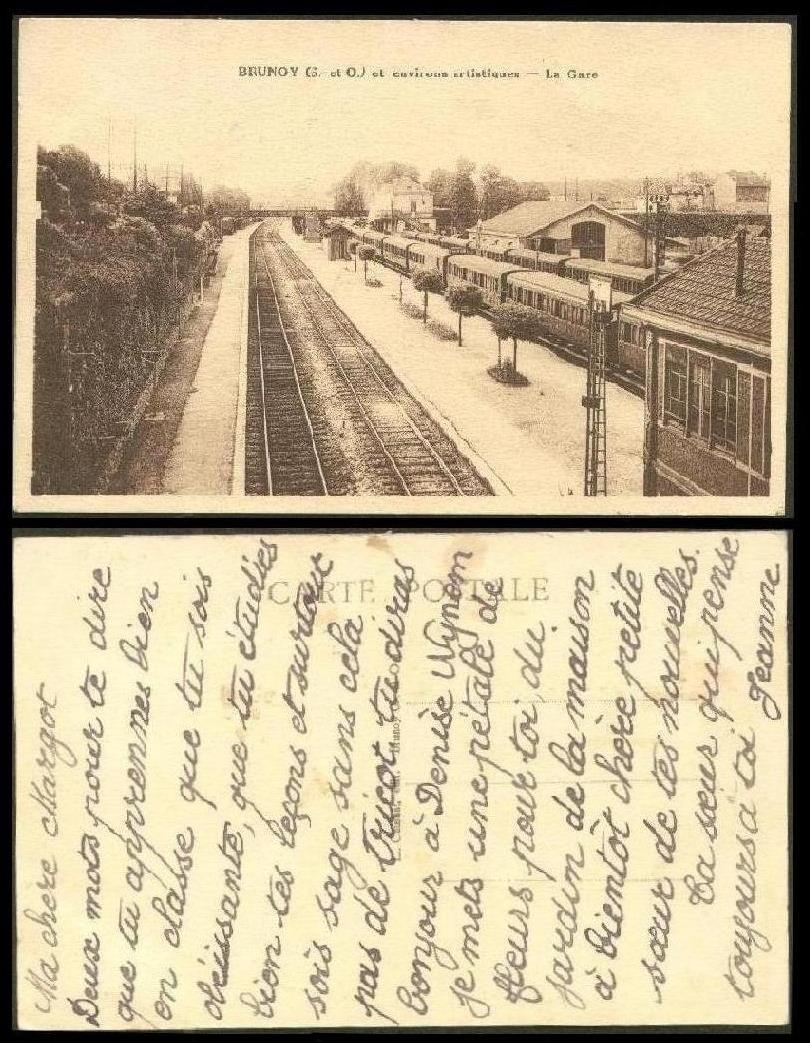 BRUNOY (S. et O.) et environs artistiques — La Gare
CARTE POSTALE
Ma chère Margot
Deux mots pour te dire
que tu apprennes bien
en classe que tu sois
obéissante, que tu étudies
bien tes leçons et surtout
sois sage sans cela
pas de tricot tu diras
bonjour à Denise
je mets une pétale de
fleurs pour toi du
jardin de la maison
à bientôt chère petite
sœur de tes nouvelles.
Ta sœur qui pense
toujours à toi
Jeanne